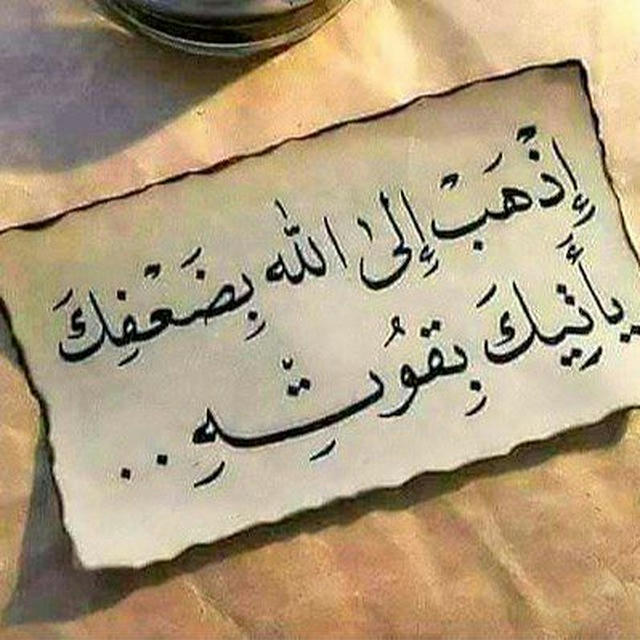 إِذْهَبْ إِلىٰ الله بِضَعْفِكَ
يأَتِيكَ بِقوُتِهِ ..